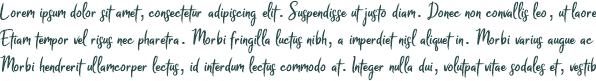 Lorem ipsum dolor sit amet, consectetur adipiscing elit. Suspendisse ut justo diam. Donec non convallis leo, ut laore
Etiam tempor vel risus nec pharetra. Morbi fringilla luctus nibh, a imperdiet nisl aliquet in. Morbi varius augue ac
Morbi hendrerit ullamcorper lectus, id interdum lectus commodo at. Integer nulla dui, volutpat vitae sodales et, vestib